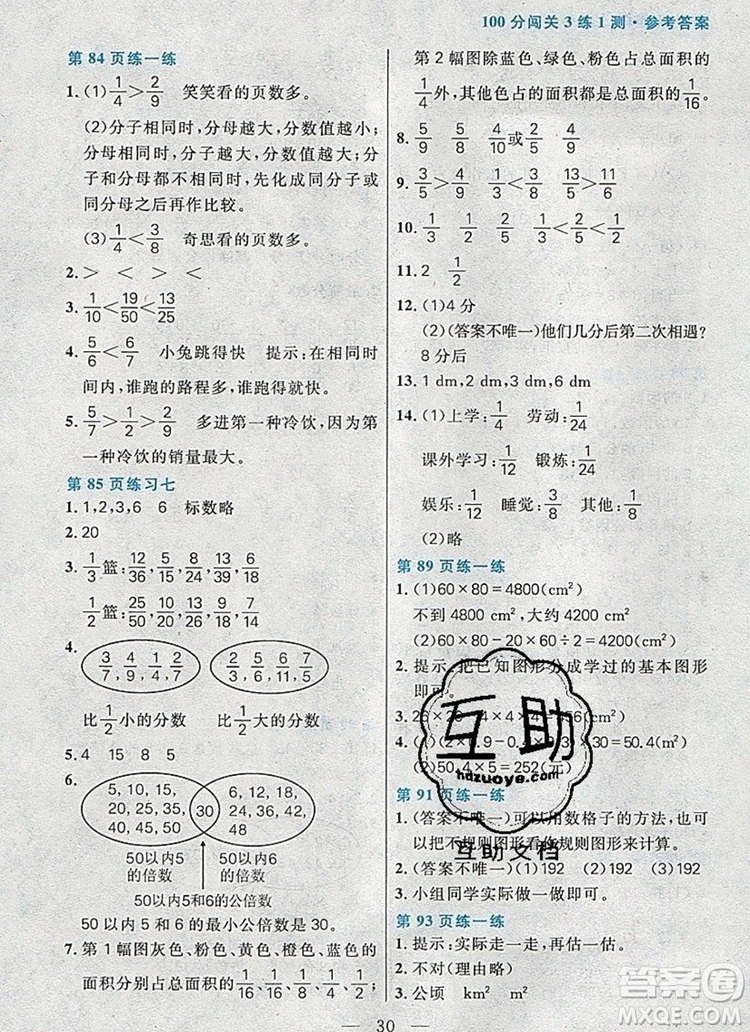 100分闯关3练1测·参考答案
第84页练一练
1. (1) 1/4 > 2/9 笑笑看的页数多。
(2)分子相同时,分母越大,分数值越小;
分母相同时,分子越大,分数值越大;分
子和分母都不相同时,先化成同分子或
同分母之后再作比较。
(3) 1/4 < 3/8 奇思看的页数多。
2. > < > <
3. 1/10 < 19/50 < 13/25
4. 5/6 < 6/7 小兔跳得快 提示:在相同时
间内,谁跑的路程多,谁就跑得快。
5. 5/7 > 1/2 > 2/9 多进第一种冷饮,因为第
一种冷饮的销量最大。
第85页练习七
1. 1,2,3,6 6 标数略
2. 20
3. 1/3 篮: 12/36, 5/15, 8/24, 13/39, 6/18
1/2 篮: 12/24, 5/10, 8/16, 13/26, 9/18
4. 3/7, 4/9, 1/4, 1/7 5/6, 5/9, 7/8, 4/5
比1/2小的分数 比1/2大的分数
5. 4 15 8 5
6. 5, 10, 15, 20, 25, 35, 40, 45, 50 30 6, 12, 18, 24, 36, 42, 48
50以内5的倍数 50以内6的倍数
50以内5和6的公倍数
50以内5和6的最小公倍数是30。
7. 第1幅图灰色、粉色、黄色、橙色、蓝色的
面积分别占总面积的
第2幅图除蓝色、绿色、粉色占总面积的
1/4外,其他色占的面积都是总面积的1/16。
8. 5/9 5/9 4/10或2/5 4/9
9. 3/5 > 4/9 1/6 < 5/8 11/5 > 11/6
10. 1/3 1/3 2/9 1/9
11. 2 1/2
12. (1)4分
(2)(答案不唯一)他们几分后第二次相遇?
8分后
13. 1 dm,2 dm,4 dm,8 dm
14. (1)上学:1/4 劳动:1/24
课外学习:1/12 锻炼:1/24
娱乐:1/12 睡觉:3/8 其他:1/8
(2)略
第89页练一练
1. (1)60×80=4800(cm²)
不到4800 cm²,大约4200 cm²
(2)60×80-20×60÷2=4200(cm²)
2. 提示:把已知图形分成学过的基本图形
即可。
3. 26×20-4×4×4=456(cm²)
第91页练一练
1. (答案不唯一)可以用数格子的方法,也可
以把不规则图形看作规则图形来计算。
2. (答案不唯一)(1)192 (2)192
3. 小组同学实际做一做即可。
第93页练一练
1. 提示:实际走一走,再估一估。
2. 不对(理由略)
3. 公顷 km² m²
30
互助
hdzuoye.com
互助文档
答案圈
MXQE.COM